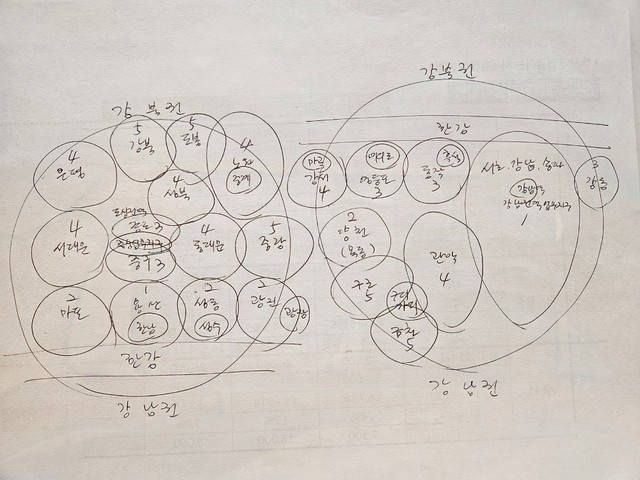 강북권
5
강북
5
도봉
4
노원
중계
4
은평
4
성북
4
서대문
도심권역
종로 3
중구 3
4
동대문
5
중랑
2
마포
1
용산
한남
2
성동
성수
2
광진
광장
한강
강남권
강북권
한강
마곡
강서
4
여의도
영등포
3
흑석
동작
3
서초.강남.송파
강남구
강남권역업무지구
1
3
강동
2
양천
(목동)
관악
4
구로
5
구디
가디
금천
5
강남권